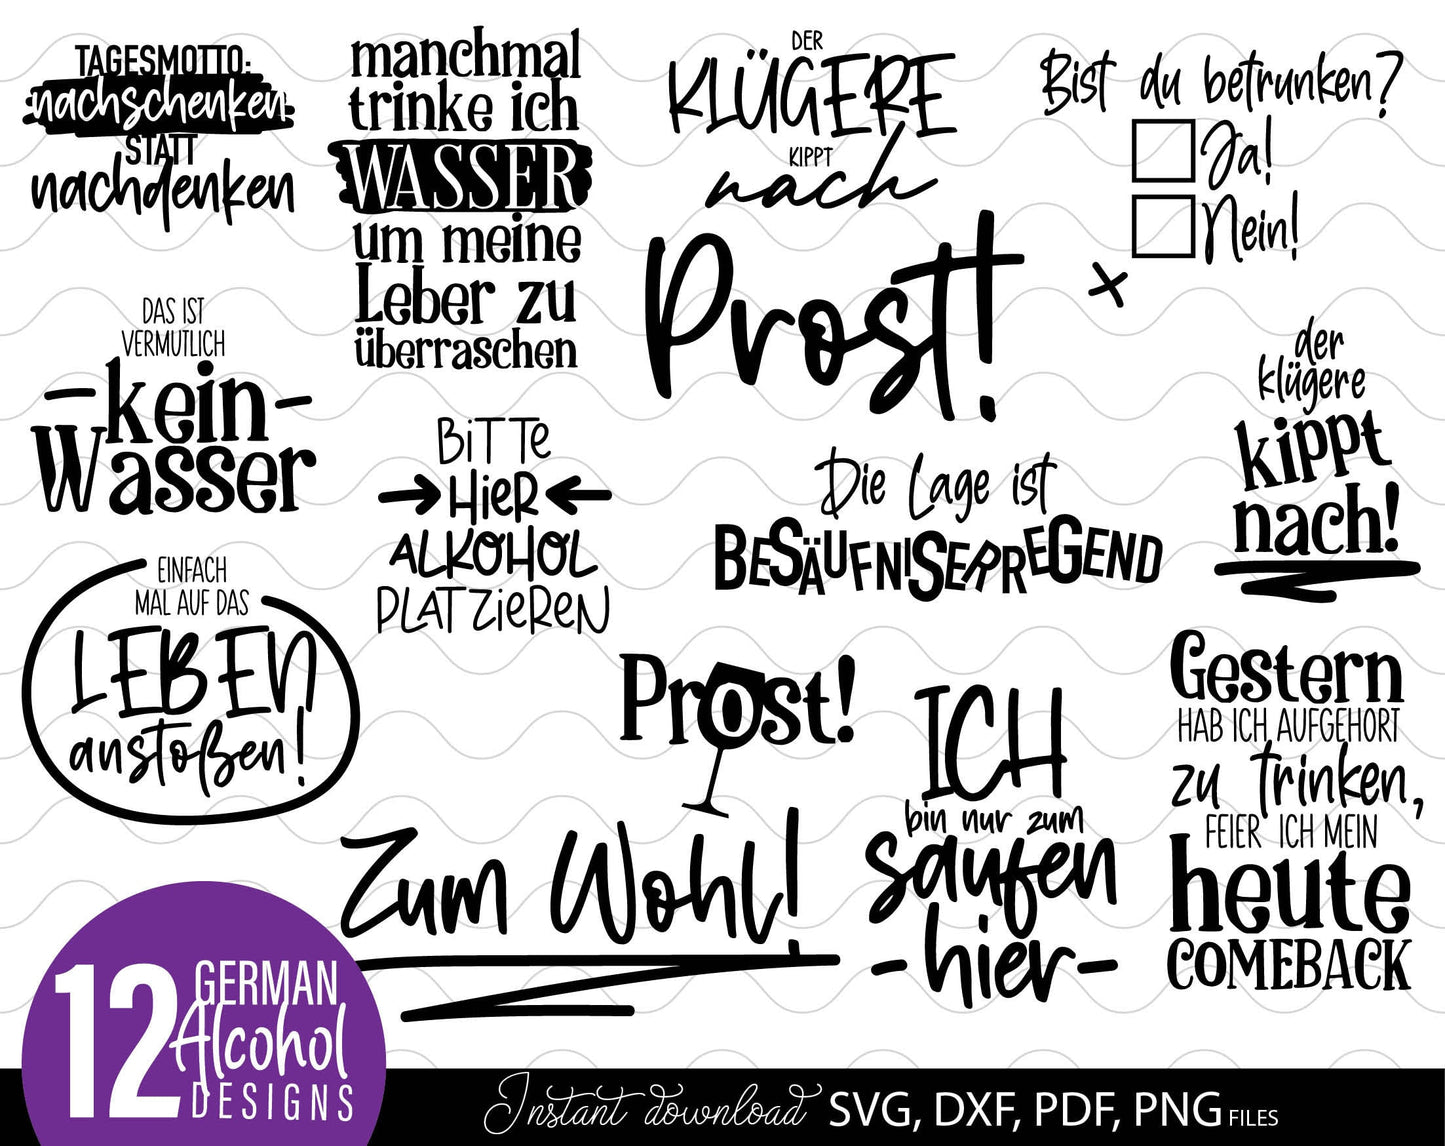 TAGESMOTTO:
nachschenken
STATT
nachdenken
manchmal
trinke ich
WASSER
um meine
Leber zu
überraschen
DER
KLÜGERE
KIPPT
nach
Bist du betrunken?
Ja!
Nein!
x
Prost!
DAS IST
VERMUTLICH
-kein-
Wasser
BITTE
HIER
ALKOHOL
PLATZIEREN
Die Lage ist
BESÄUFNISERREGEND
der
klügere
kippt
nach!
EINFACH
MAL AUF DAS
LEBEN
anstoßen!
Prost!
ICH
bin nur zum
saufen
-hier-
Gestern
HAB ICH AUFGEHÖRT
zu trinken,
FEIER ICH MEIN
heute
COMEBACK
Zum Wohl!
12 GERMAN
Alcohol
DESIGNS
Instant download SVG, DXF, PDF, PNG FILES